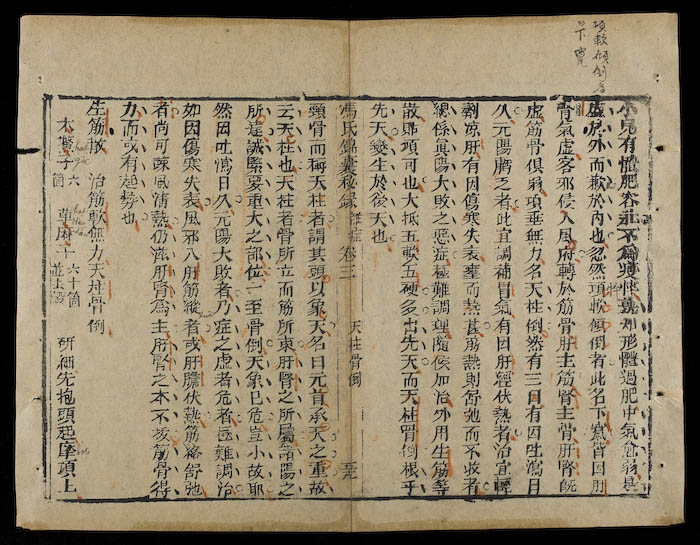 項軟傾倒者
小兒有體肥容壯不爲變怪孰知形體過肥中氣愈弱是
盛於外而歉於內也忽然項軟傾倒者此名下竄皆因肝
腎氣虛客邪侵入風府轉於筋骨肝主筋腎主骨肝腎旣
虛筋骨俱弱項垂無力名天柱倒然有三因有因吐瀉日
久元陽脫乏者此宜調補胃氣有因肝經伏熱者治宜輕
劑凉肝有因傷寒失表壅而熱甚筋熱則舒弛而不收者
總係眞陽大敗之惡症極難調理隨候加治外用生筋等
散貼項可也大抵五軟五硬多由先天而天柱骨倒根乎
先天變生於後天也
馮氏錦囊秘錄 雜症 卷三 天柱骨倒
頸骨而稱天柱者謂其頭以象天名曰元首承天之重故
云天柱也天柱者骨所立而筋所束肝腎之所屬諸陽之
所達誠緊要重大之部位一至骨倒天象已危豈小故耶
然因吐瀉日久元陽大敗者乃症之虛者危者極難調治
如因傷寒失表風邪入肝筋縱者或肝膽伏熱筋絡舒弛
者尚可疎風淸熱仍滋肝腎爲主肝腎之本不拔筋骨得
力而或有起勢也
生筋散 治筋軟無力天柱骨倒
木鱉子六箇 草麻十六十箇並去殼 研細先抱頭起摩項上